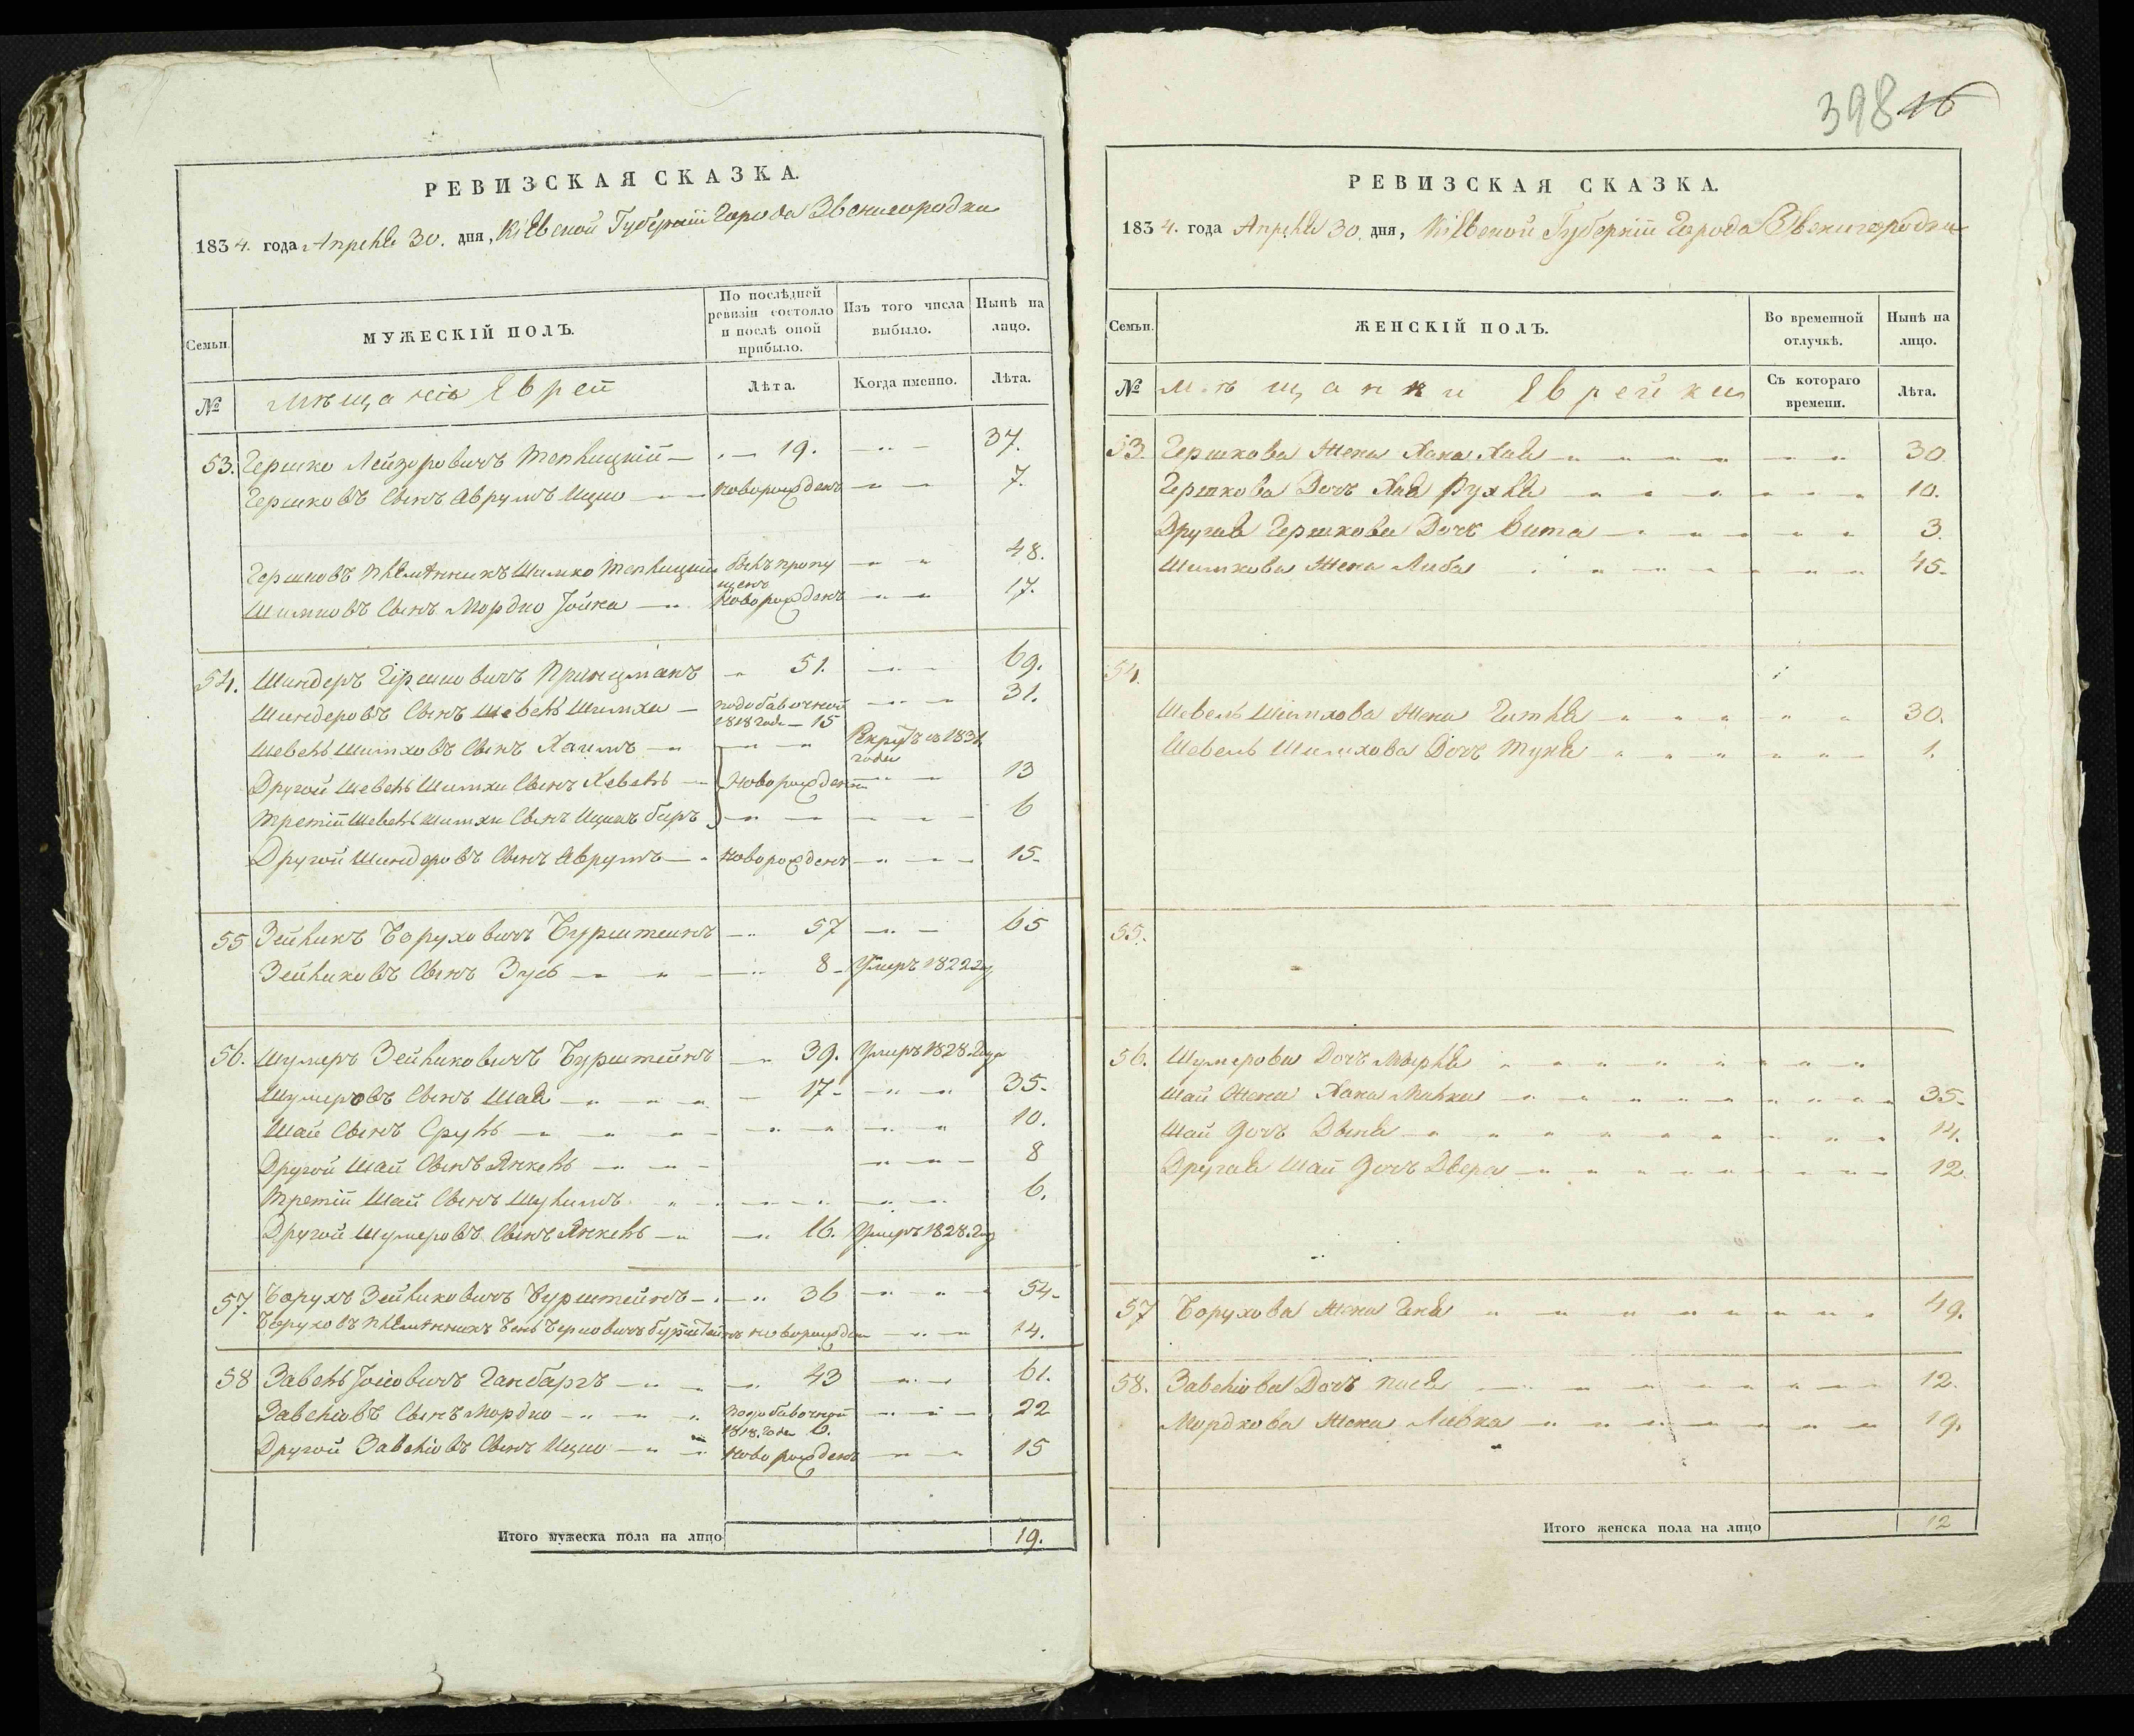 РЕВИЗСКАЯ СКАЗКА.
1834. года Апреля 30. дня, Кіевской Губерніи Города Звенигородки
Семьи.
МУЖЕСКІЙ ПОЛЪ.
По послѣдней ревизіи состояло и послѣ оной прибыло.
Изъ того числа выбыло.
Нынѣ на лицо.
№
Мѣщане Евреи
Лѣта.
Когда именно.
Лѣта.
53. Гершко Лейзоровичъ Теплицкій 19. 37.
Гершковъ Сынъ Аврумъ Ицко новорожденъ 7.
Гершковъ племянникъ Шимко Теплицкій былъ пропущенъ 48.
Шимковъ Сынъ Мордко Іойна Новорожденъ 17.
54. Шендеръ Гершковичъ Принцманъ 51. 69.
Шендеровъ Сынъ Шевель Шимха подобавочной 1818 года 15 31.
Шевель Шимховъ Сынъ Хаимъ Рекрутъ в 1831 году
Другой Шевель Шимхи Сынъ Хевель Новорожденны 13
Третій Шевель Шимхи Сынъ Ицикъ беръ 6
Другой Шендеровъ Сынъ Аврумъ Новорожденъ 15.
55 Зейликъ Боруховичъ Бурштеинъ 57 65
Зейликовъ Сынъ Зусь 8 Умеръ 1822 го
56. Шумеръ Зейликовичъ Бурштейнъ 39. Умеръ 1828 года
Шумеровъ Сынъ Шая 17 35.
Шаи Сынъ Сруль 10.
Другой Шаи Сынъ Янкель 8
Третій Шаи Сынъ Шулимъ 6.
Другой Шумеровъ Сынъ Янкель 16. Умеръ 1828 год
57. Борухъ Зейликовичъ Бурштейнъ 36 54.
Боруховъ племянникъ Бень Берковичъ Бурштейнъ новорожден 14.
58 Завель Іосіовичъ Ганбаргъ 43 61.
Завеліовъ Сынъ Мордко подобавочной 1818 года 6. 22
Другой Завеліовъ Сынъ Ицко Новорожденъ 15
Итого мужеска пола на лицо 19.
398 16
РЕВИЗСКАЯ СКАЗКА.
1834. года Апреля 30. дня, Кіевской Губерніи Города Звенигородки
Семьи.
ЖЕНСКІЙ ПОЛЪ.
Во временной отлучкѣ.
Нынѣ на лицо.
№
Мѣщанки Еврейки
Съ котораго времени.
Лѣта.
53. Гершкова Жена Хана Хая 30
Гершкова Дочь Хая Рухля 10.
Другая Гершкова Дочь Вита 3.
Шимкова Жена Либа 45.
54.
Шевель Шимхова Жена Гитля 30.
Шевель Шимхова Дочь Туня 1.
55.
56. Шумерова Дочь Мырля
Шаи Жена Хана Малка 35.
Шаи Дочь Дыня 14.
Другая Шаи Дочь Двера 12.
57 Борухова Жена Геня 49.
58. Завеліова Дочь Пися 12.
Мордкова Жена Ливка 19.
Итого женска пола на лицо 12